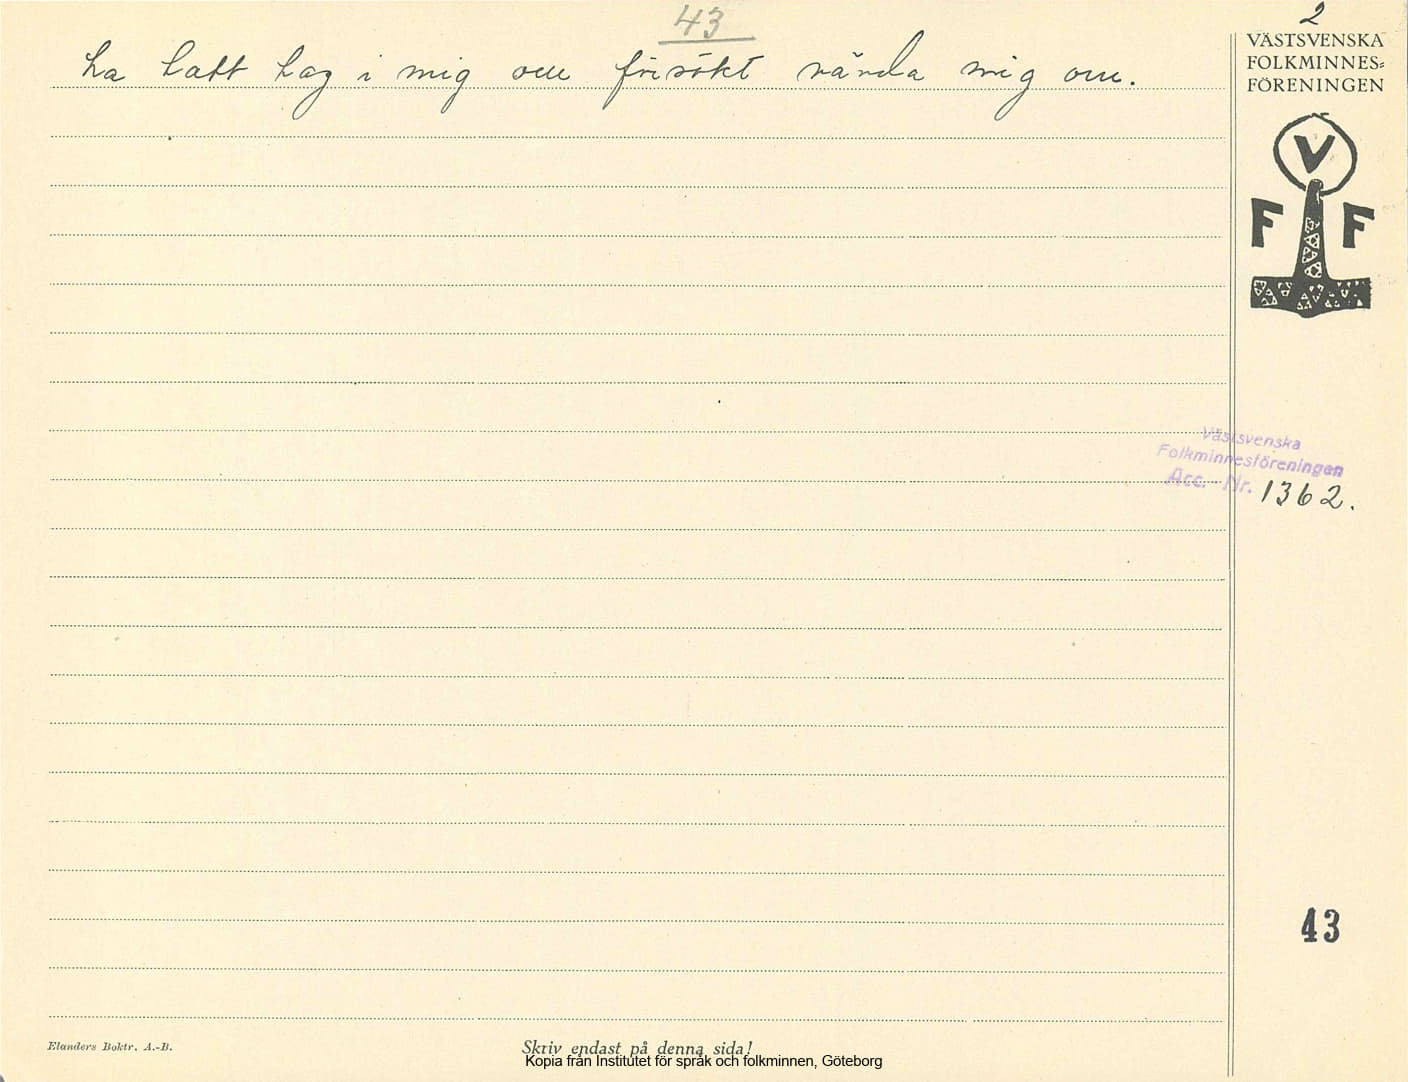 43
2
ha hatt tag i mig försökt vända mig om.
VÄSTSVENSKA
FOLKMINNES=
FÖRENINGEN
V
F F
Västsvenska
Folkminnesföreningen
Acc. Nr. 1362.
43
Elanders Boktr. A.-B.
Skriv endast på denna sida!
Kopia från Institutet för språk och folkminnen, Göteborg